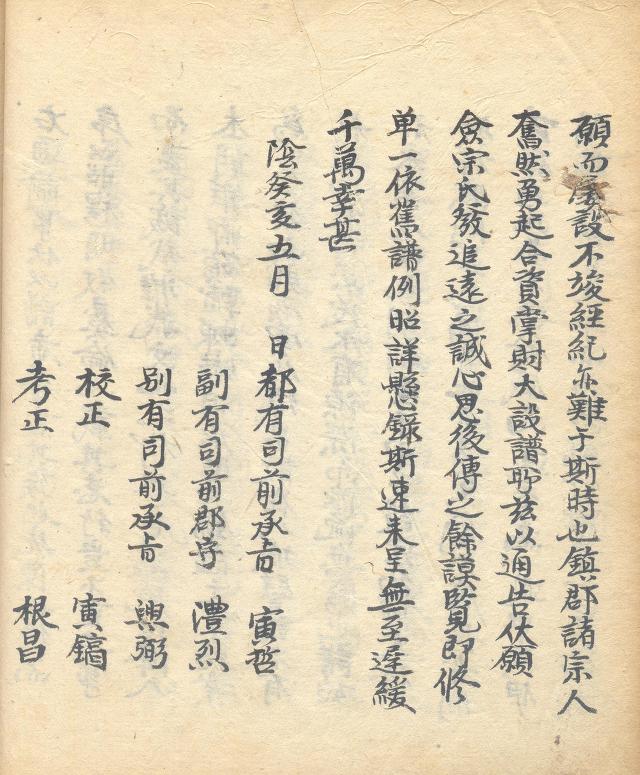 願而屢設不竣經紀亦難于斯時也鎮郡諸宗人
奮然勇起合資掌財大設譜所玆以通告伏願
僉宗氏發追遠之誠心思後傳之餘謨覽即修
单一依舊譜例昭詳懸錄斯速来呈無至遲緩
千萬幸甚
陰癸亥五月 日都有司前承旨 寅哲
副有司前郡守 澧烈
别有司前承旨 弼
校正 寅鎬
考正 根昌